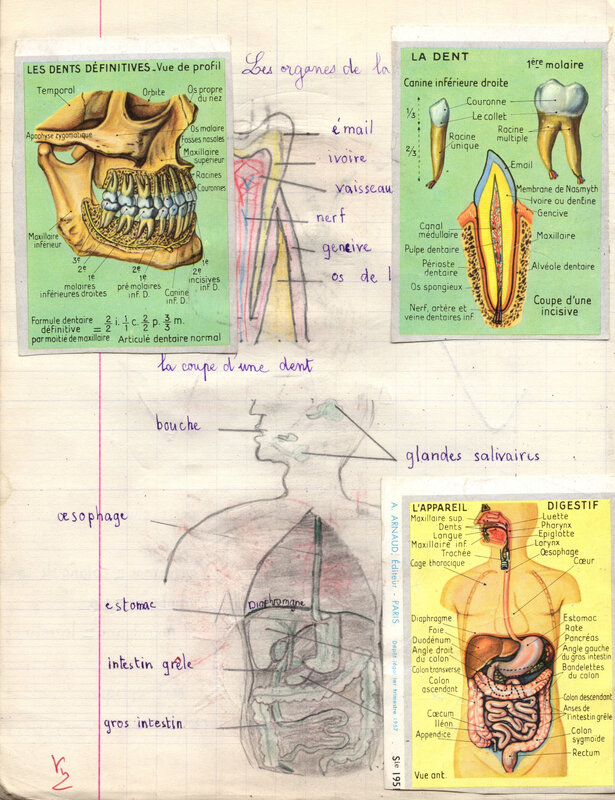 LES DENTS DÉFINITIVES_Vue de profil
Temporal
Orbite
Os propre
du nez
Apophyse zygomatique
Os malaire
Fosses nasales
Maxillaire
supérieur
Racines
Couronnes
Maxillaire
inférieur
3e
2e
1e
molaires
inférieures droites
2e
1e
pré molaires
inf. D.
Canine
inf. D.
2e
1e
incisives
inf. D.
Formule dentaire
définitive
par moitié de maxillaire
= 2/2 i. 1/1 c. 2/2 p. 3/3 m.
Articulé dentaire normal
Les organes de la
émail
ivoire
vaisseau
nerf
gencive
os de l
LA DENT
1ère molaire
Canine inférieure droite
Couronne
Le collet
1/3
2/3
Racine
unique
Racine
multiple
Email
Membrane de Nasmyth
Ivoire ou dentine
Gencive
Canal
médullaire
Maxillaire
Pulpe dentaire
Périoste
dentaire
Alvéole dentaire
Os spongieux
Coupe d'une
incisive
Nerf, artère et
veine dentaires inf.
la coupe d'une dent
bouche
glandes salivaires
œsophage
Diaphragme
estomac
intestin grêle
gros intestin
A. ARNAUD, Éditeur - PARIS
Dépôt légal 1er trimestre 1957
Sie 195
L'APPAREIL DIGESTIF
Maxillaire sup.
Dents
Langue
Maxillaire inf.
Trachée
Cage thoracique
Luette
Pharynx
Epiglotte
Larynx
Œsophage
Cœur
Diaphragme
Foie
Duodénum
Angle droit
du colon
Colon transverse
Colon
ascendant
Cæcum
Iléon
Appendice
Estomac
Rate
Pancréas
Angle gauche
du gros intestin
Bandelettes
du colon
Colon descendant
Anses de
l'intestin grêle
Colon
sygmoïde
Rectum
Vue ant.